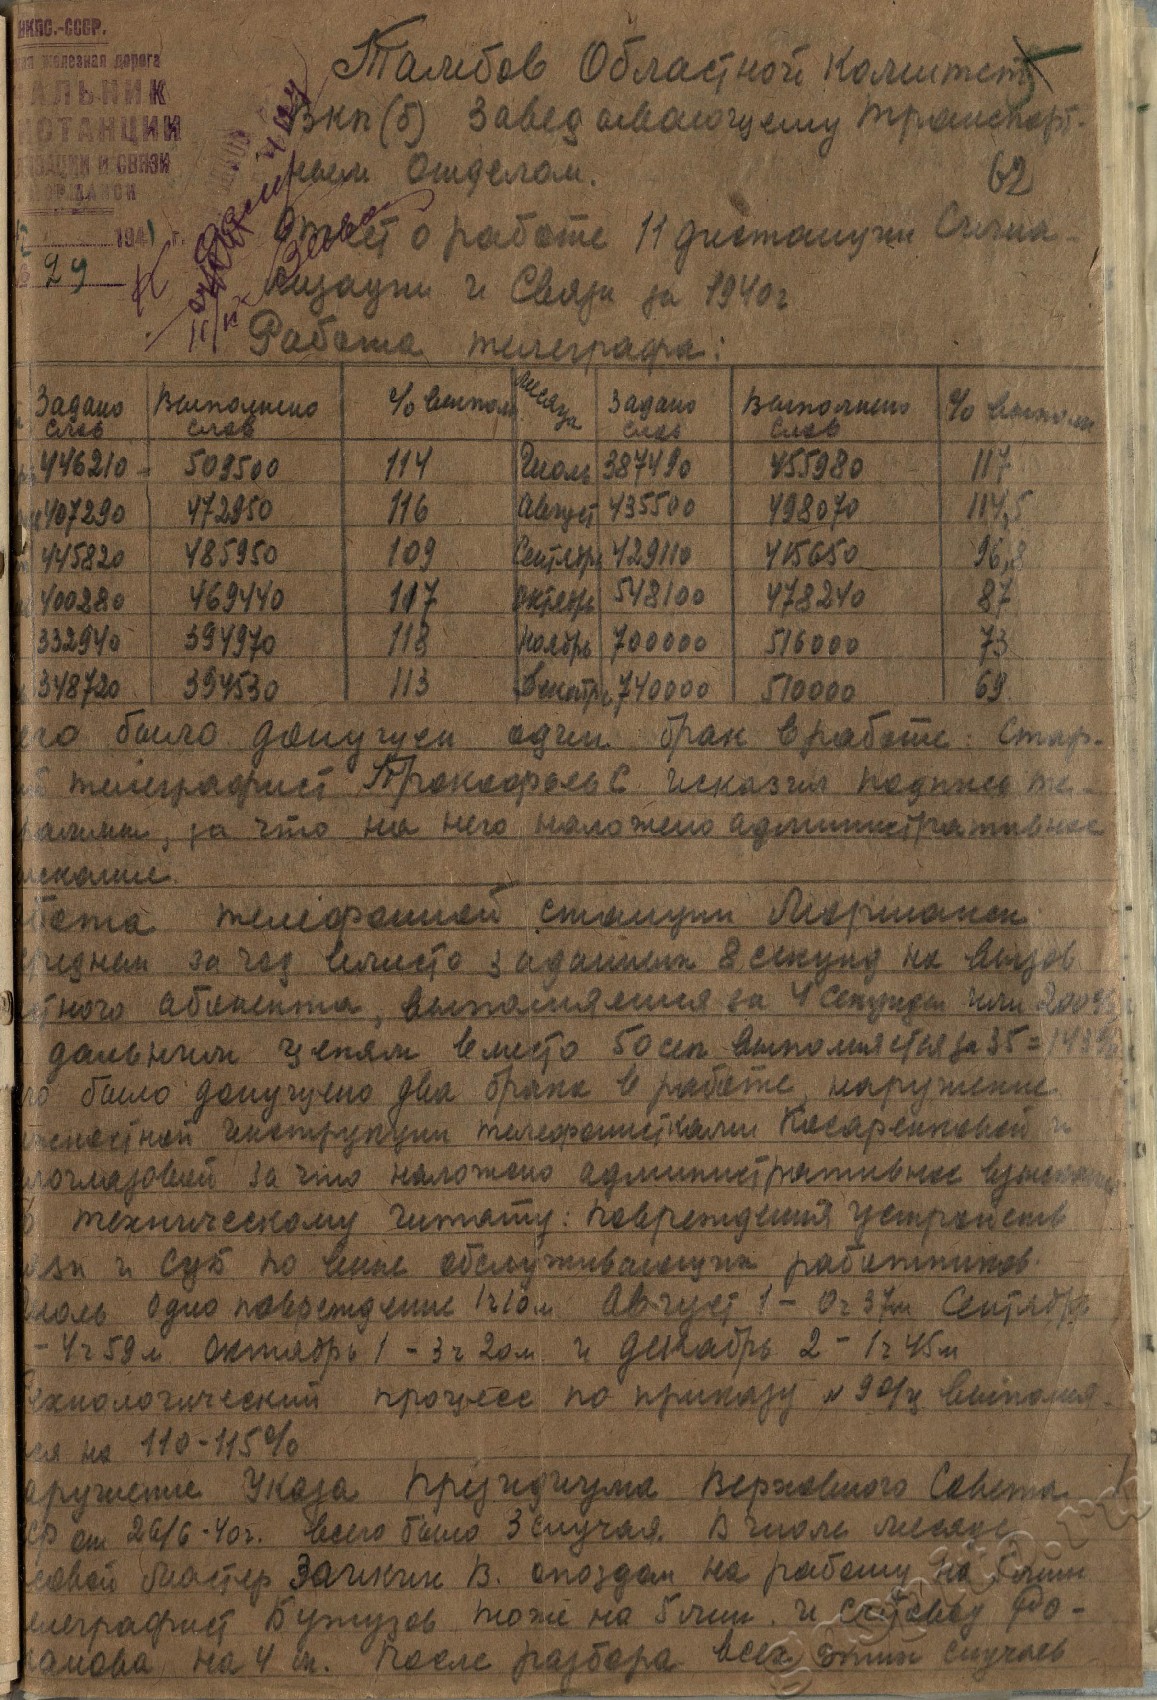 НКПС.-СССР.
железная дорога
НАЧАЛЬНИК
ДИСТАНЦИИ
И СВЯЗИ
МОРШАНСК
1941 г.
29
62
Тамбов Областной Комитет
ВКП(б) Заведывающему транспорт-
ным отделом.
Отчет о работе 11 дистанции Сигна-
лизации и Связи за 1940г
Работа телеграфа:
Задано слов Выполнено слов % выполн месяца Задано слов Выполнено слов % выполн
446210 509500 114 Июль 387490 455980 117
407290 472950 116 Август 435500 498070 114,5
445820 485950 109 Сентябрь 429110 415650 96,8
400280 469440 117 Октябрь 548100 478240 87
332940 394970 118 Ноябрь 700000 516000 73
348720 394530 113 Декабрь 740000 510000 69
его было допущен один брак в работе Стар-
телеграфист Прокофьев С. исказил подпись те-
за что на него наложено административное
взыскание.
бота телефонной станции Моршанск
среднем за год вместо заданных 8 секунд на вызов
стного абонента, выполняется за 4 секунды или 200%
дальним цепям вместо 50 сек выполняется за 35=143%
го было допущено два брака в работе, нарушение
жностной инструкции телефонистками Косаренковой и
за что наложено административное взыскание
техническому читату: повреждения устройств
язи и СЦБ по вине обслуживающих работников.
июль одно повреждение 1ч10м Август 1 – 0ч 37м Сентябрь
– 4ч 59м Октябрь 1 – 3ч 20м и декабрь 2 – 1ч 45м
ехнологический процесс по приказу № 90/ц выполня-
ся на 110-115%
арушение Указа Президиума Верховного Совета
ССР от 26/6-40г. всего было 3 случая. В июле месяце
совой мастер Заикин В. опоздал на работу на мин
елеграфист Бужузов тоже на 5 мин. и счетовод Ро-
манова на 4 м. После разбора всех этих случаев